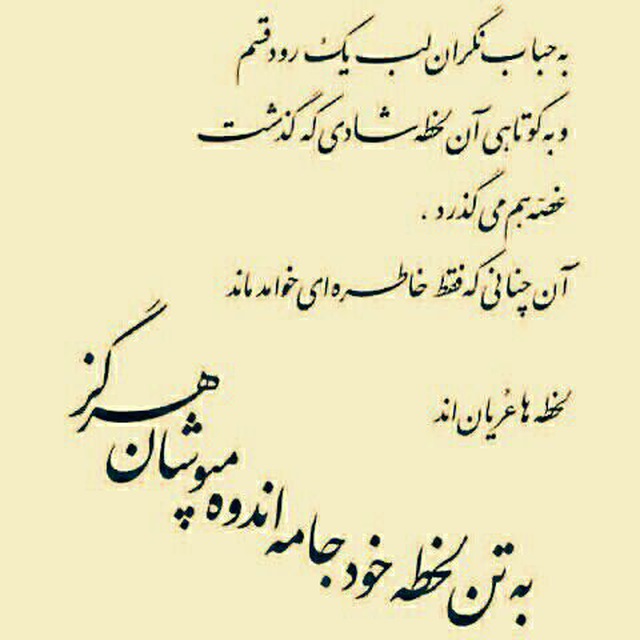 به حباب نگران لب یک رود قسم
و به کوتاهی آن لحظه شادی که گذشت
غصّه هم می گذرد .
آن چنانی که فقط خاطره ای خواهد ماند
لحظه ها عُریان اند
به تن لحظه خود جامه اندوه مپوشان هرگز